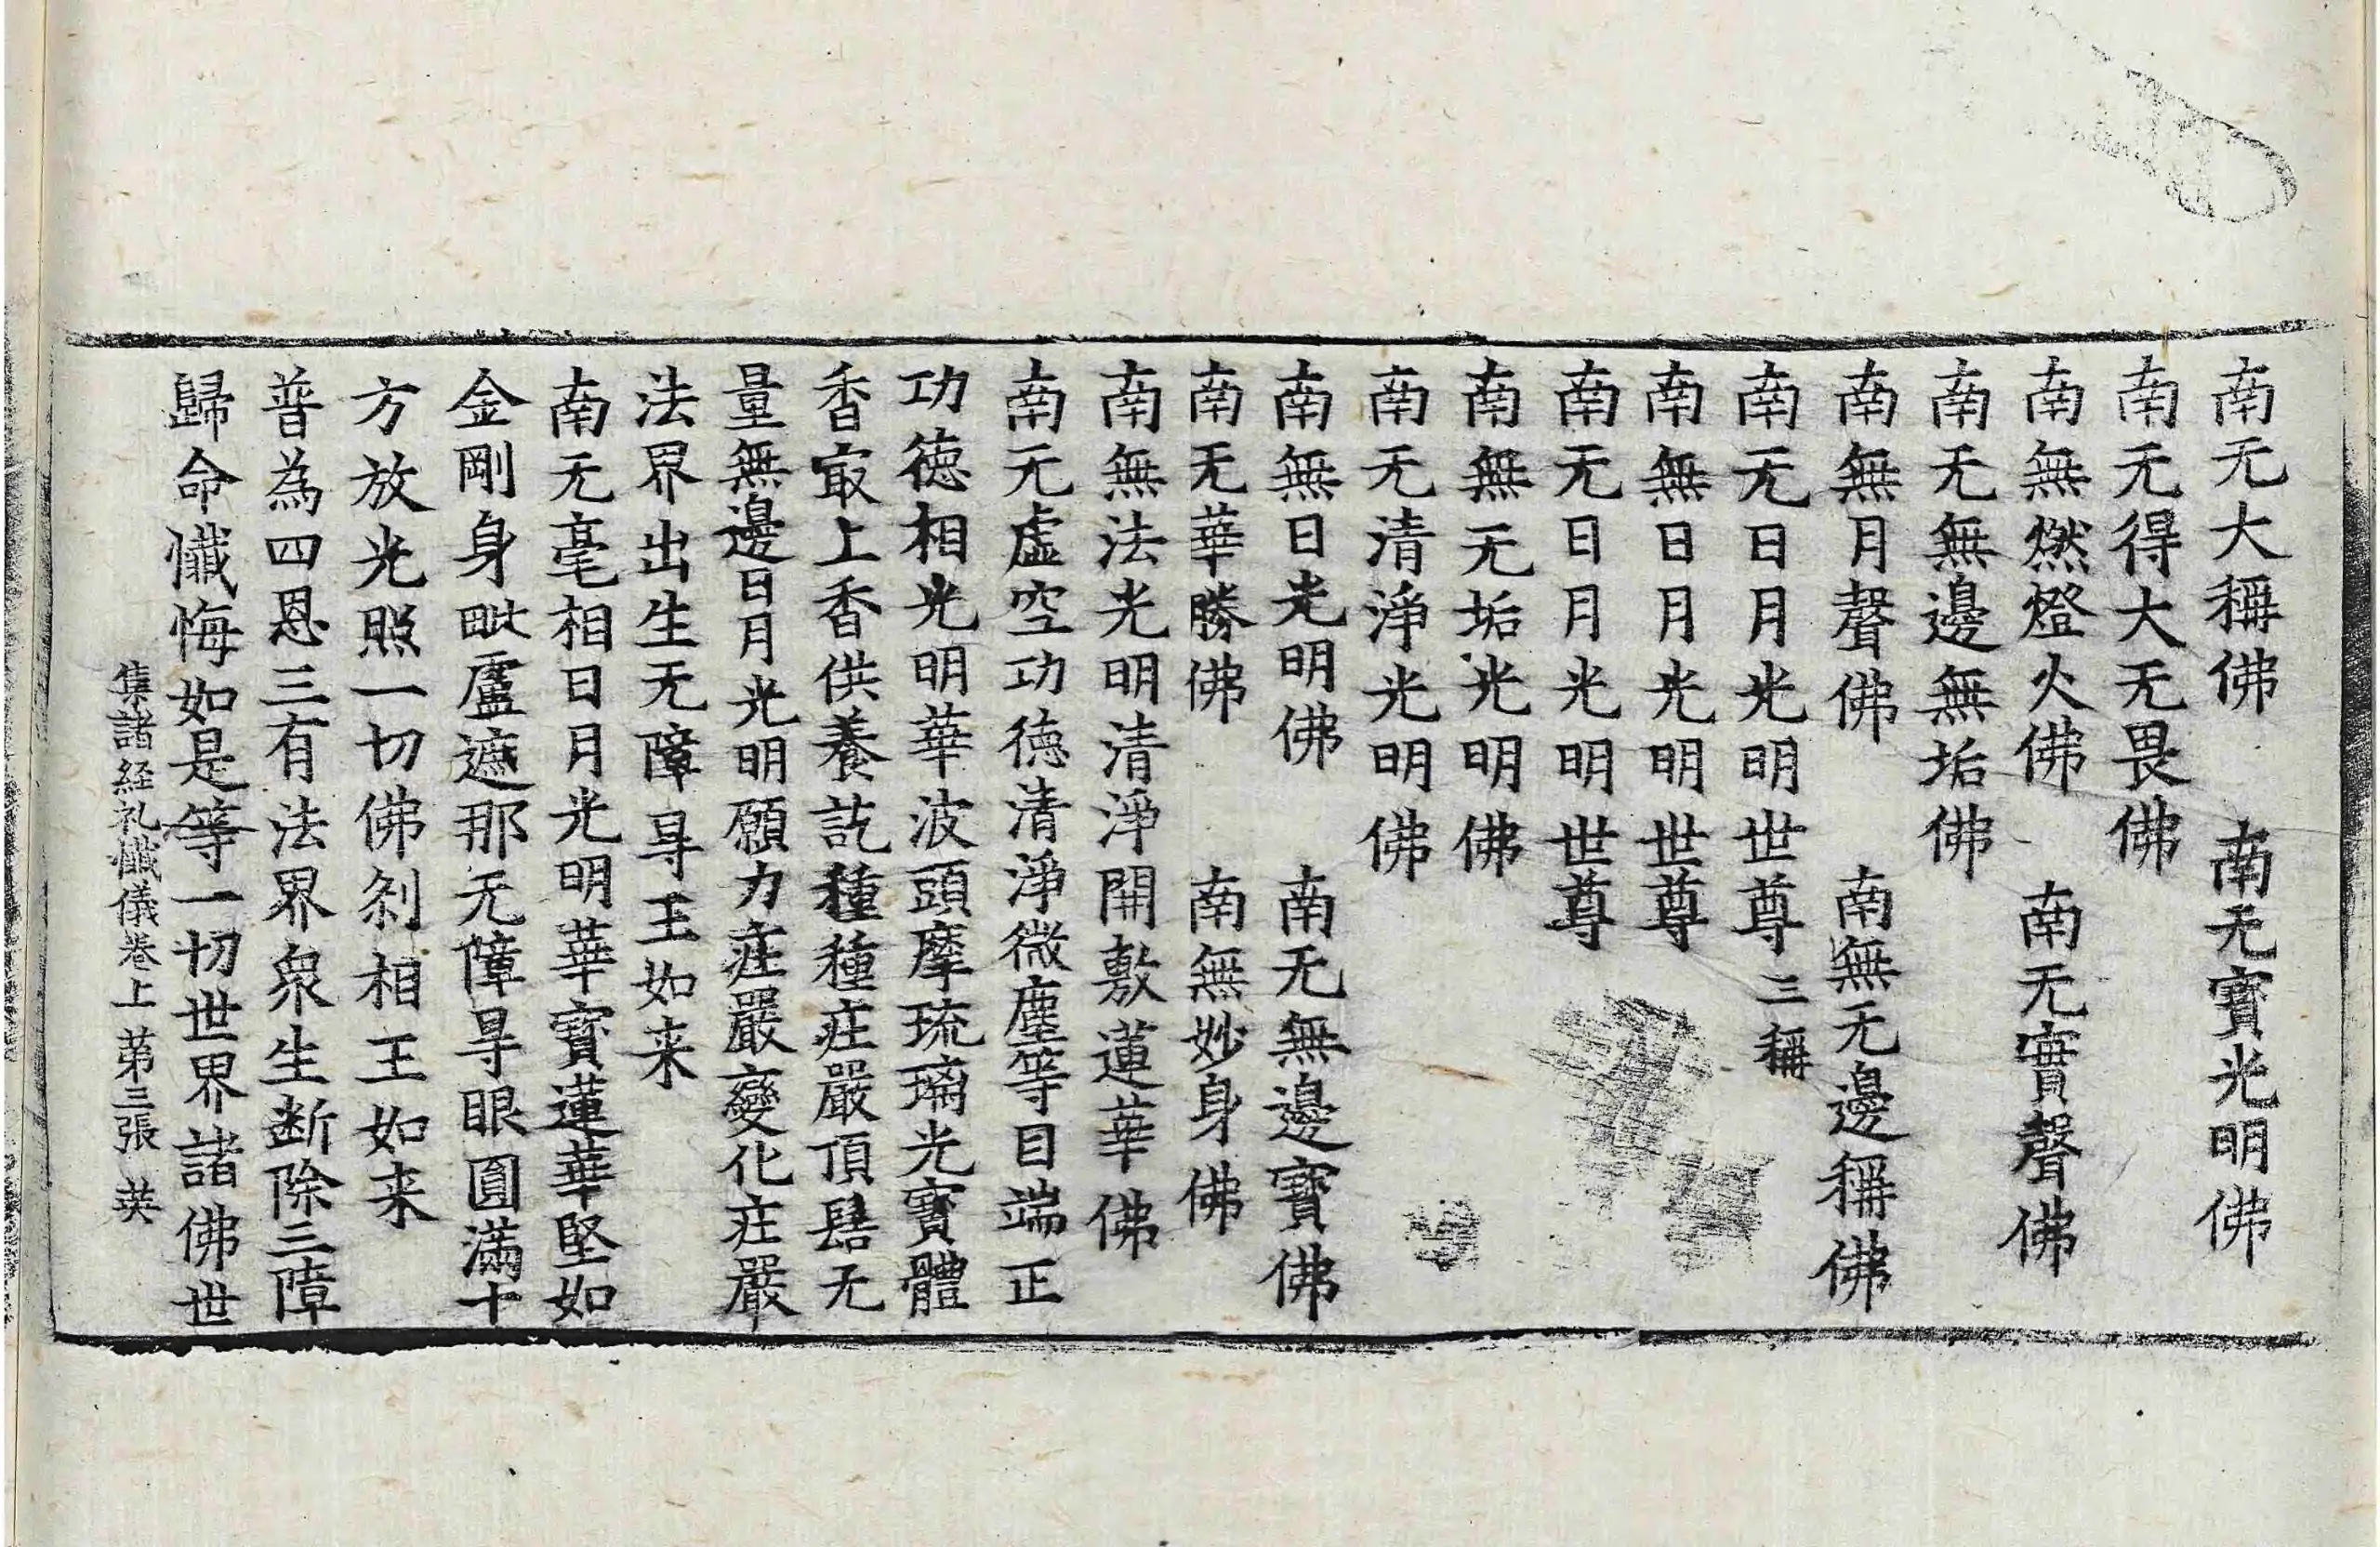 南无大稱佛　南无寶光明佛
南无得大无畏佛
南無燃燈火佛　南无實聲佛
南无無邊無垢佛
南無月聲佛　南無无邊稱佛
南无日月光明世尊三稱
南無日月光明世尊
南无日月光明世尊
南無无垢光明佛
南无清淨光明佛
南無日光明佛　南无無邊寶佛
南无華勝佛　南無妙身佛
南無法光明清淨開敷蓮華佛
南无虛空功德清淨微塵等目端正
功德相光明華波頭摩琉璃光寶體
香㝡上香供養訖種種庄嚴頂髻无
量無邊日月光明願力庄嚴變化庄嚴
法界出生无障㝵王如来
南无毫相日月光明華寶蓮華堅如
金剛身毗盧遮那无障㝵眼圓滿十
方放光照一切佛刹相王如来
普為四恩三有法界衆生断除三障
歸命懺悔如是等一切世界諸佛世
集諸経礼懺儀卷上　苐三張　英